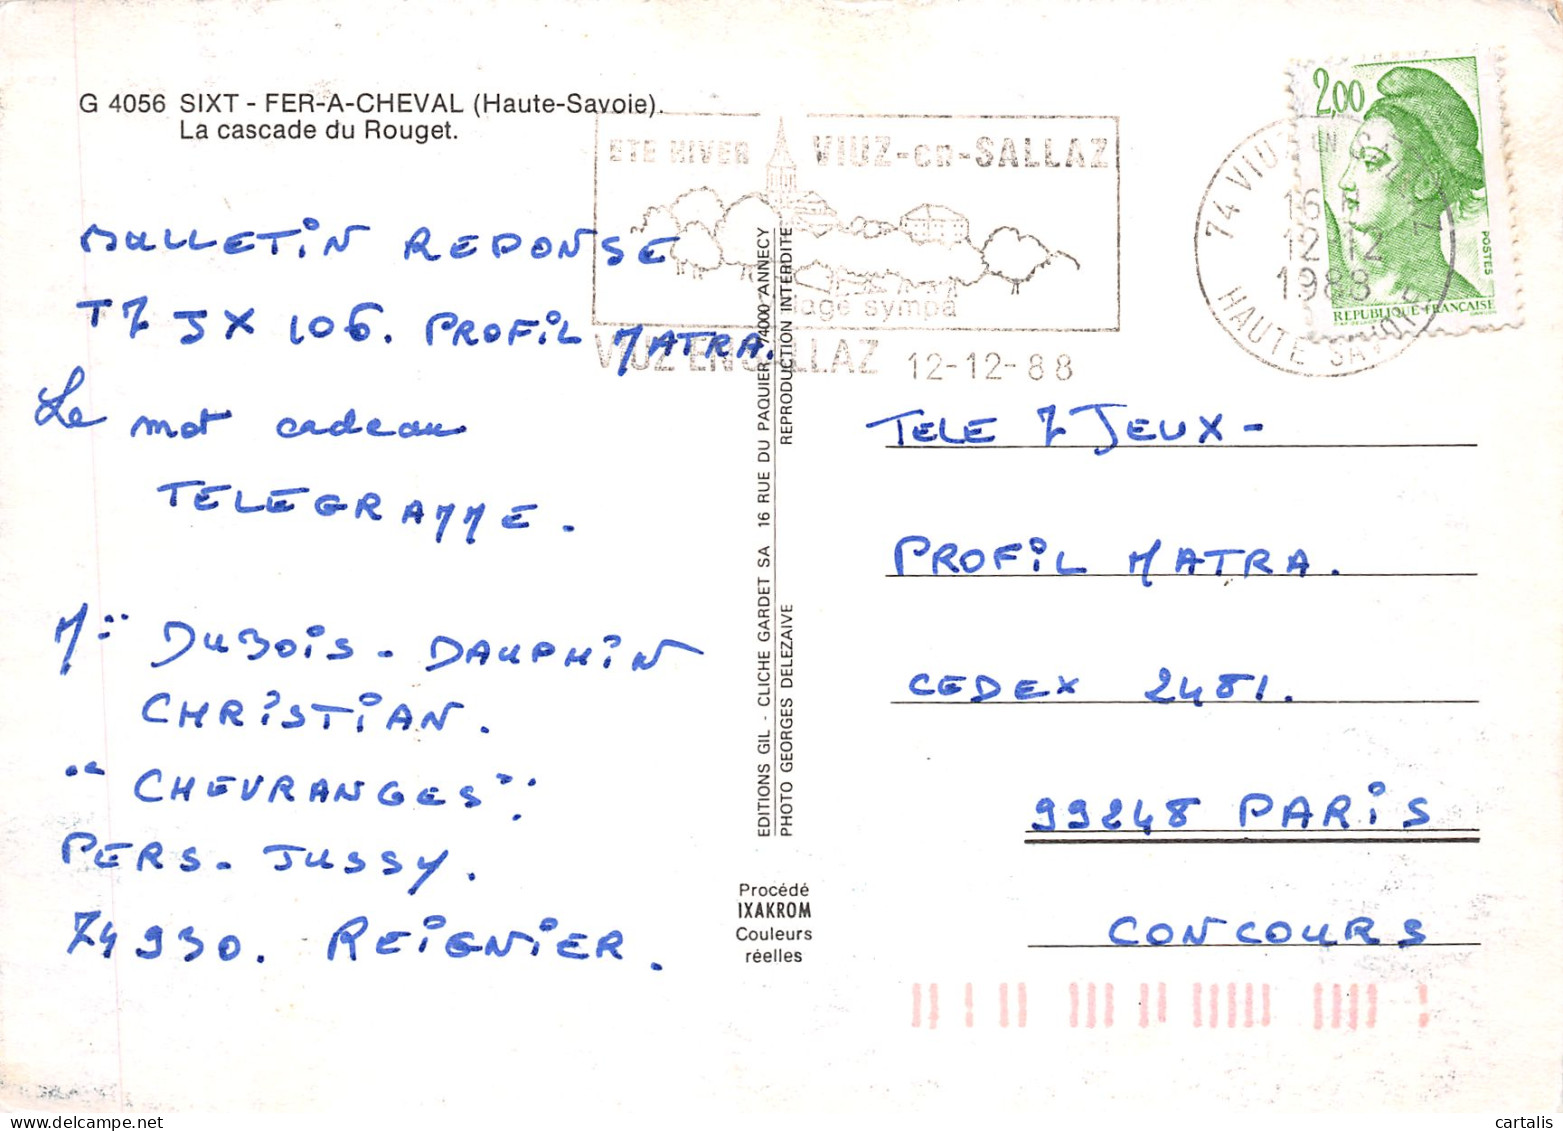 G 4056 SIXT - FER-A-CHEVAL (Haute-Savoie).
La cascade du Rouget.
ETE HIVER VIUZ-en-SALLAZ
village sympa
VIUZ EN SALLAZ 12-12-88
74 VIUZ EN SALLAZ
16 H
12-12
1988
HAUTE SAVOIE
2,00
POSTES
REPUBLIQUE FRANÇAISE
BULLETIN REPONSE
T7 JX 106. PROFIL MATRA.
Le mot cadeau
TELEGRAMME.
Mr DUBOIS - DAUPHIN
CHRISTIAN.
"CHEVRANGES".
PERS - JUSSY.
74930. REIGNIER.
EDITIONS GIL - CLICHE GARDET SA 16 RUE DU PAQUIER 74000 ANNECY
PHOTO GEORGES DELEZAIVE REPRODUCTION INTERDITE
Procédé
IXAKROM
Couleurs
réelles
TELE 7 JEUX -
PROFIL MATRA.
CEDEX 2481.
99248 PARIS
CONCOURS
cartalis